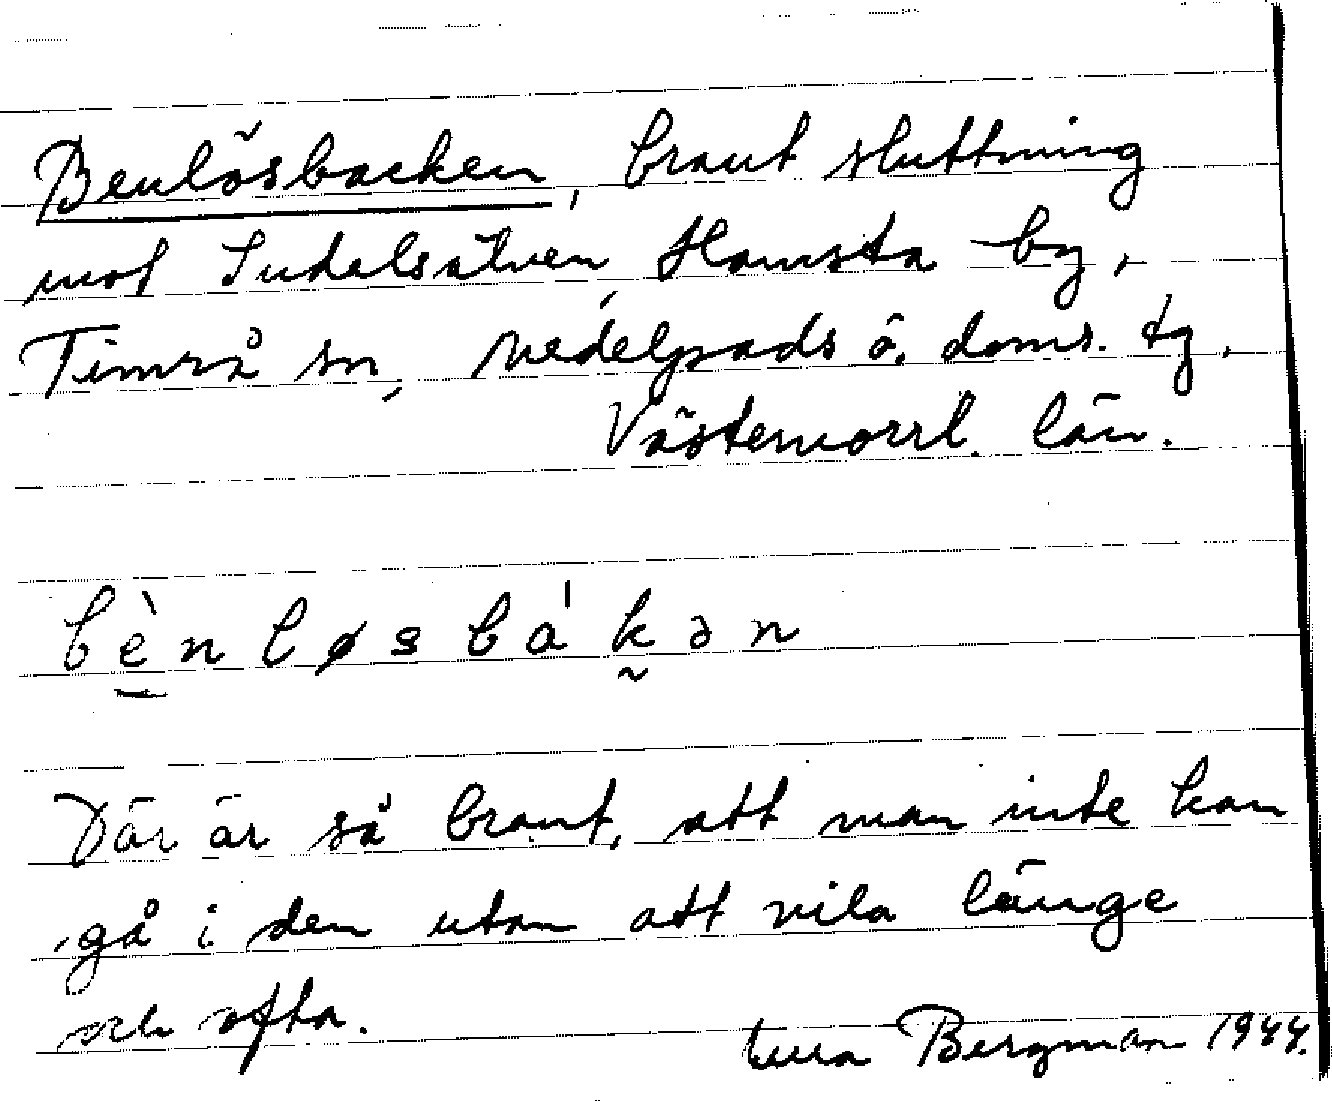 Benlösbacken, brant sluttning
mot Indalsälven, Hamsta by,
Timrå sn, Medelpads ö. doms. tg,
Västernorrl. län.
bènløsbákən
Där är så brant, att man inte kan
gå i den utan att vila länge
och ofta.
Bergman 1944.